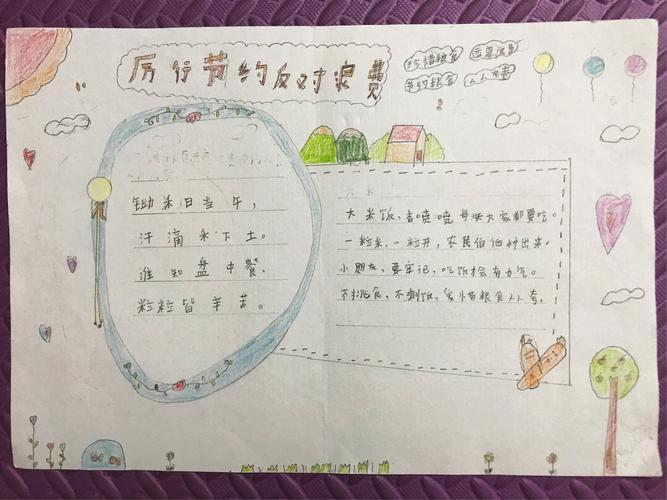 厉行节约反对浪费
珍惜粮食
节约粮食
人人有责
锄禾日当午,
汗滴禾下土。
谁知盘中餐,
粒粒皆辛苦。
大米饭,香喷喷,每天大家都要吃。
一粒米,一粒开,农民伯伯种出来。
小朋友,要牢记,吃饭才会有力气。
不挑食,不剩饭,爱惜粮食人人夸,